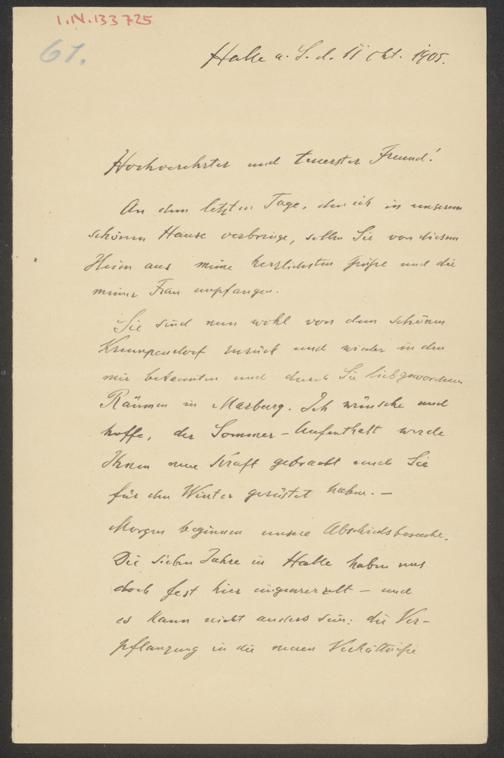 I.N. 133725
61.
Halle a. S. d. 11 Okt. 1905.
Hochverehrter und teuerster Freund!
An dem letzten Tage, den ich in unserem
schönen Hause verbringe, sollen Sie von diesem
Heim aus meine herzlichsten Grüße und die
meiner Frau empfangen.
Sie sind nun wohl von dem schönen
Krumpendorf zurück und wieder in den
mir bekannten und durch Sie liebgewordenen
Räumen in Marburg. Ich wünsche und
hoffe, der Sommer-Aufenthalt werde
Ihnen neue Kraft gebracht und Sie
für den Winter gerüstet haben. –
Morgen beginnen unsere Abschiedsbesuche.
Die sieben Jahre in Halle haben uns
doch fest hier eingewurzelt – und
es kann nicht anders sein: die Ver-
pflanzung in die neuen Verhältnisse